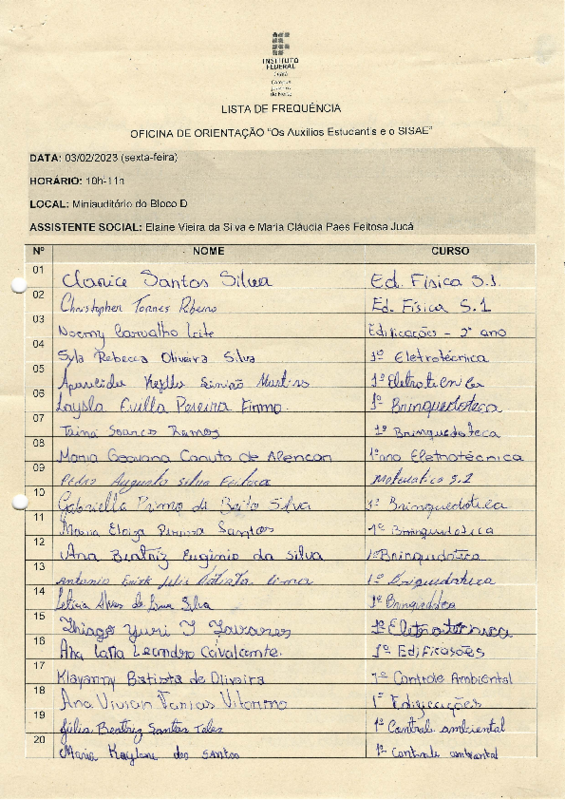 INSTITUTO
FEDERAL
Ceará
LISTA DE FREQUÊNCIA
OFICINA DE ORIENTAÇÃO "Os Auxílios Estudantis e o SISAE"
DATA: 03/02/2023 (sexta-feira)
HORÁRIO: 10h-11h
LOCAL: Miniauditório do Bloco D
ASSISTENTE SOCIAL: Elaine Vieira da Silva e Maria Cláucia Paes Feitosa Jucá
Nº NOME CURSO
01 Clarice Santos Silva Ed. Física S.1
02 Christopher Torres Ribeiro Ed. Física S.1
03 Noemy Carvalho Leite Edificações - 2º ano
04 Syla Rebeca Oliveira Silva 1º Eletrotécnica
05 Aparecida Martins 1º Eletrotecnica
06 Laysla Evilla Pereira Firmo. 1º Brinquedoteca
07 Tainá Soares Ramos 1º Brinquedoteca
08 Maria Geovana Canuto de Alencar 1º ano Eletrotécnica
09 Pedro Augusto Silva Matematica S.1
10 Gabriella Primo de Brito Silva 1º Brinquedoteca
11 Maria Eloiza Pereira Santos 1º Brinquedotica
12 Ana Beatriz Eugênio da silva 1º Brinquedoteca
13 Antonio Lima 1º Briquedoteca
14 Leticia Alves de Lima Silva 1º Brinquedoteca
15 Thiago Yuri T Tavares 1º Eletrotécnica
16 Ana Laila Leandro Cavalcante. 1º Edificasões
17 Klayanny Batista de Oliveira 1º Controle Ambiental
18 Ana Vivian Farias Vitorino 1º Edificações
19 Júlia Beatriz Santos Teles 1º Controle ambiental
20 Maria Kaylane dos Santos 1º Controle ambiental